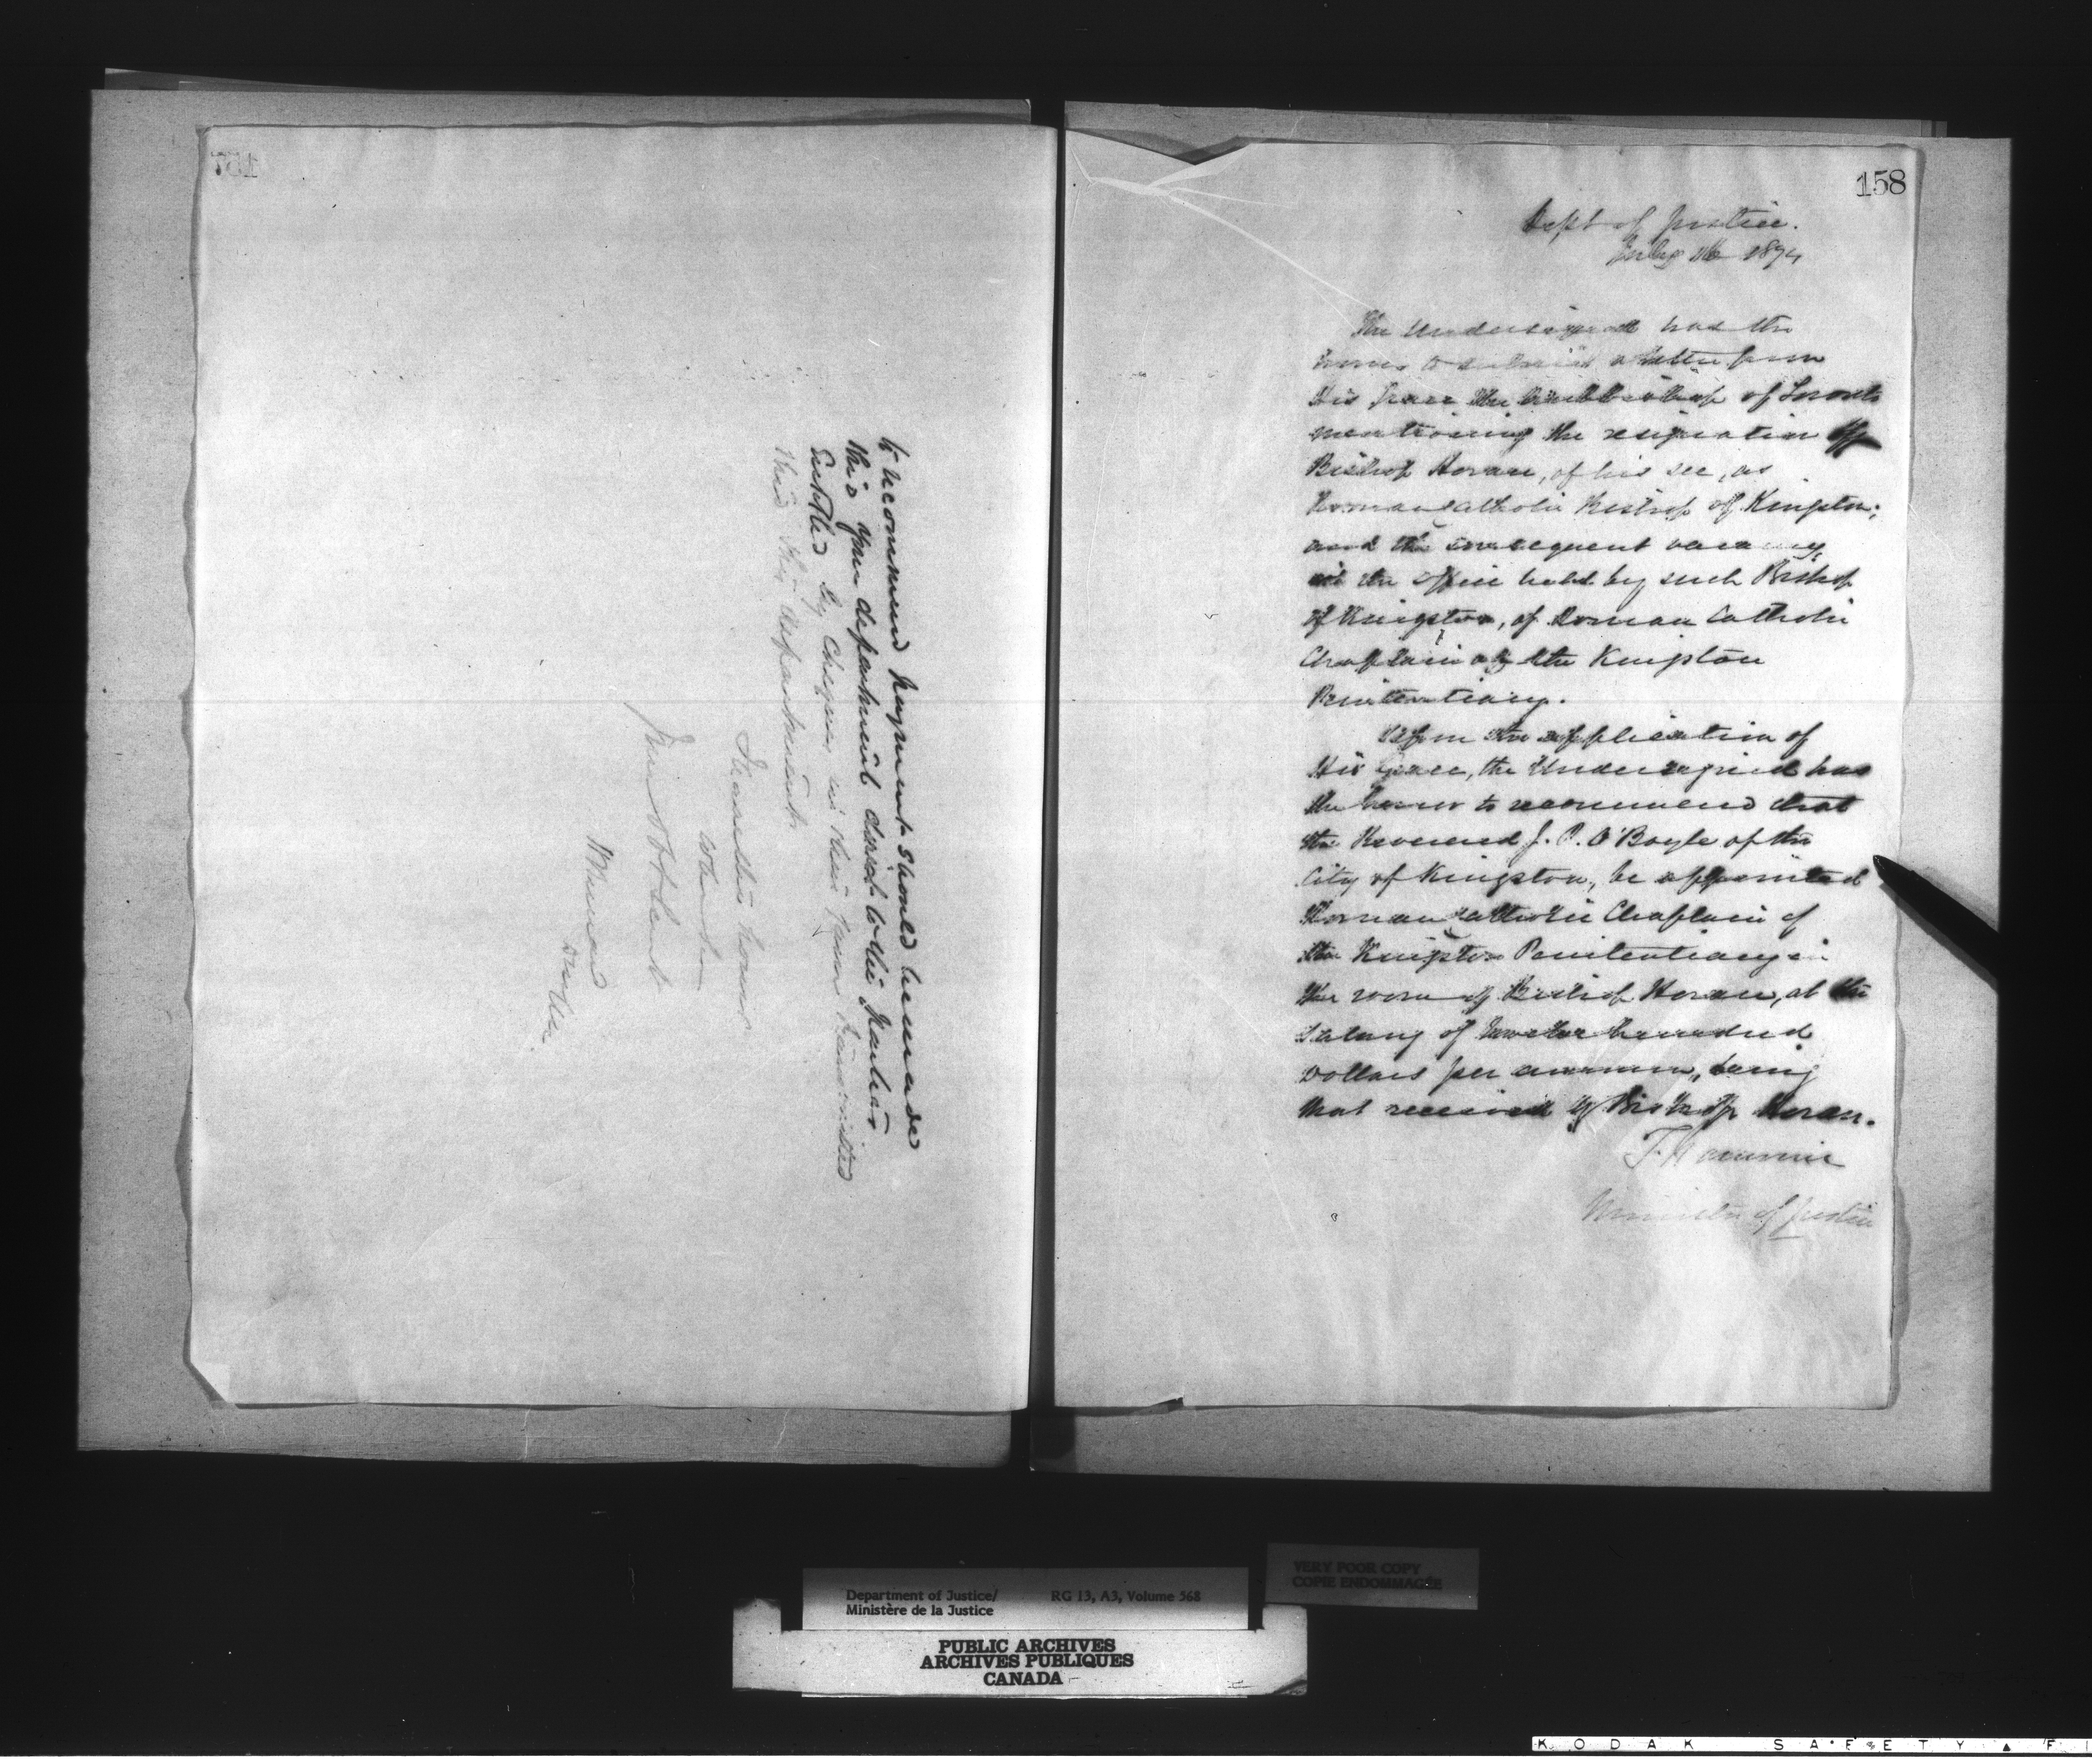 157
to recommend payment should be made
this your department direct to the parties
entitled by cheques in their favor transmitted
thro this department.
I have the honor
to be
Your Ob Servt
158
Dept of Justice.
July 16 1874
The Undersigned has the
honor to submit a letter from
His Grace the Archbishop of Toronto
mentioning the resignation of
Bishop Horan, of his see, as
Roman Catholic Bishop of Kingston;
and the consequent vacancy
in the office held by such Bishop
of Kingston, of Roman Catholic
Chaplain of the Kingston
Penitentiary.
Upon the application of
His Grace, the Undersigned has
the honor to recommend that
the Reverend J. P. O'Boyle of the
City of Kingston, be appointed
Roman Catholic Chaplain of
the Kingston Penitentiary in
the room of Bishop Horan, at the
salary of twelve hundred
Dollars per annum, being
that received by Bishop Horan.
T. Fournier
Minister of Justice
Department of Justice/ RG 13, A3, Volume 568
Ministère de la Justice
VERY POOR COPY
COPIE ENDOMMAGÉE
PUBLIC ARCHIVES
ARCHIVES PUBLIQUES
CANADA
KODAK SAFETY F